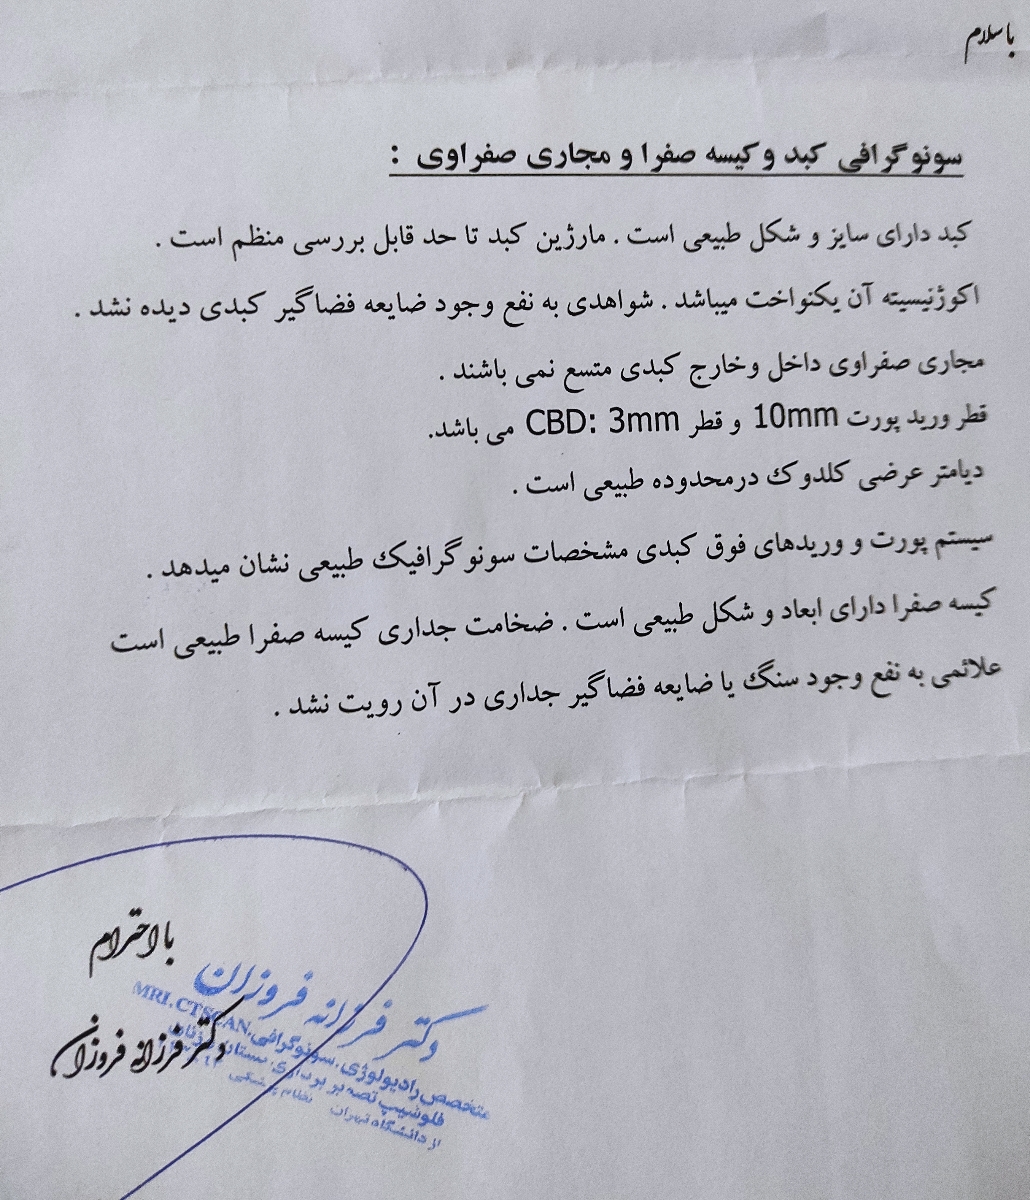 با سلام
سونوگرافی کبد وکیسه صفرا و مجاری صفراوی :
کبد دارای سایز و شکل طبیعی است . مارژین کبد تا حد قابل بررسی منظم است .
اکوژنیسیته آن یکنواخت میباشد . شواهدی به نفع وجود ضایعه فضاگیر کبدی دیده نشد .
مجاری صفراوی داخل وخارج کبدی متسع نمی باشند .
قطر ورید پورت 10mm و قطر CBD: 3mm می باشد.
دیامتر عرضی کلدوک درمحدوده طبیعی است .
سیستم پورت و وریدهای فوق کبدی مشخصات سونوگرافیک طبیعی نشان میدهد .
کیسه صفرا دارای ابعاد و شکل طبیعی است . ضخامت جداری کیسه صفرا طبیعی است
علائمی به نفع وجود سنگ یا ضایعه فضاگیر جداری در آن رویت نشد .
با احترام
دکتر فرزانه فروزان
دکتر فرزانه فروزان
متخصص رادیولوژی، سونوگرافی، MRI, CTSCAN
فلوشیپ تصویربرداری پستان و زنان
از دانشگاه تهران نظام پزشکی